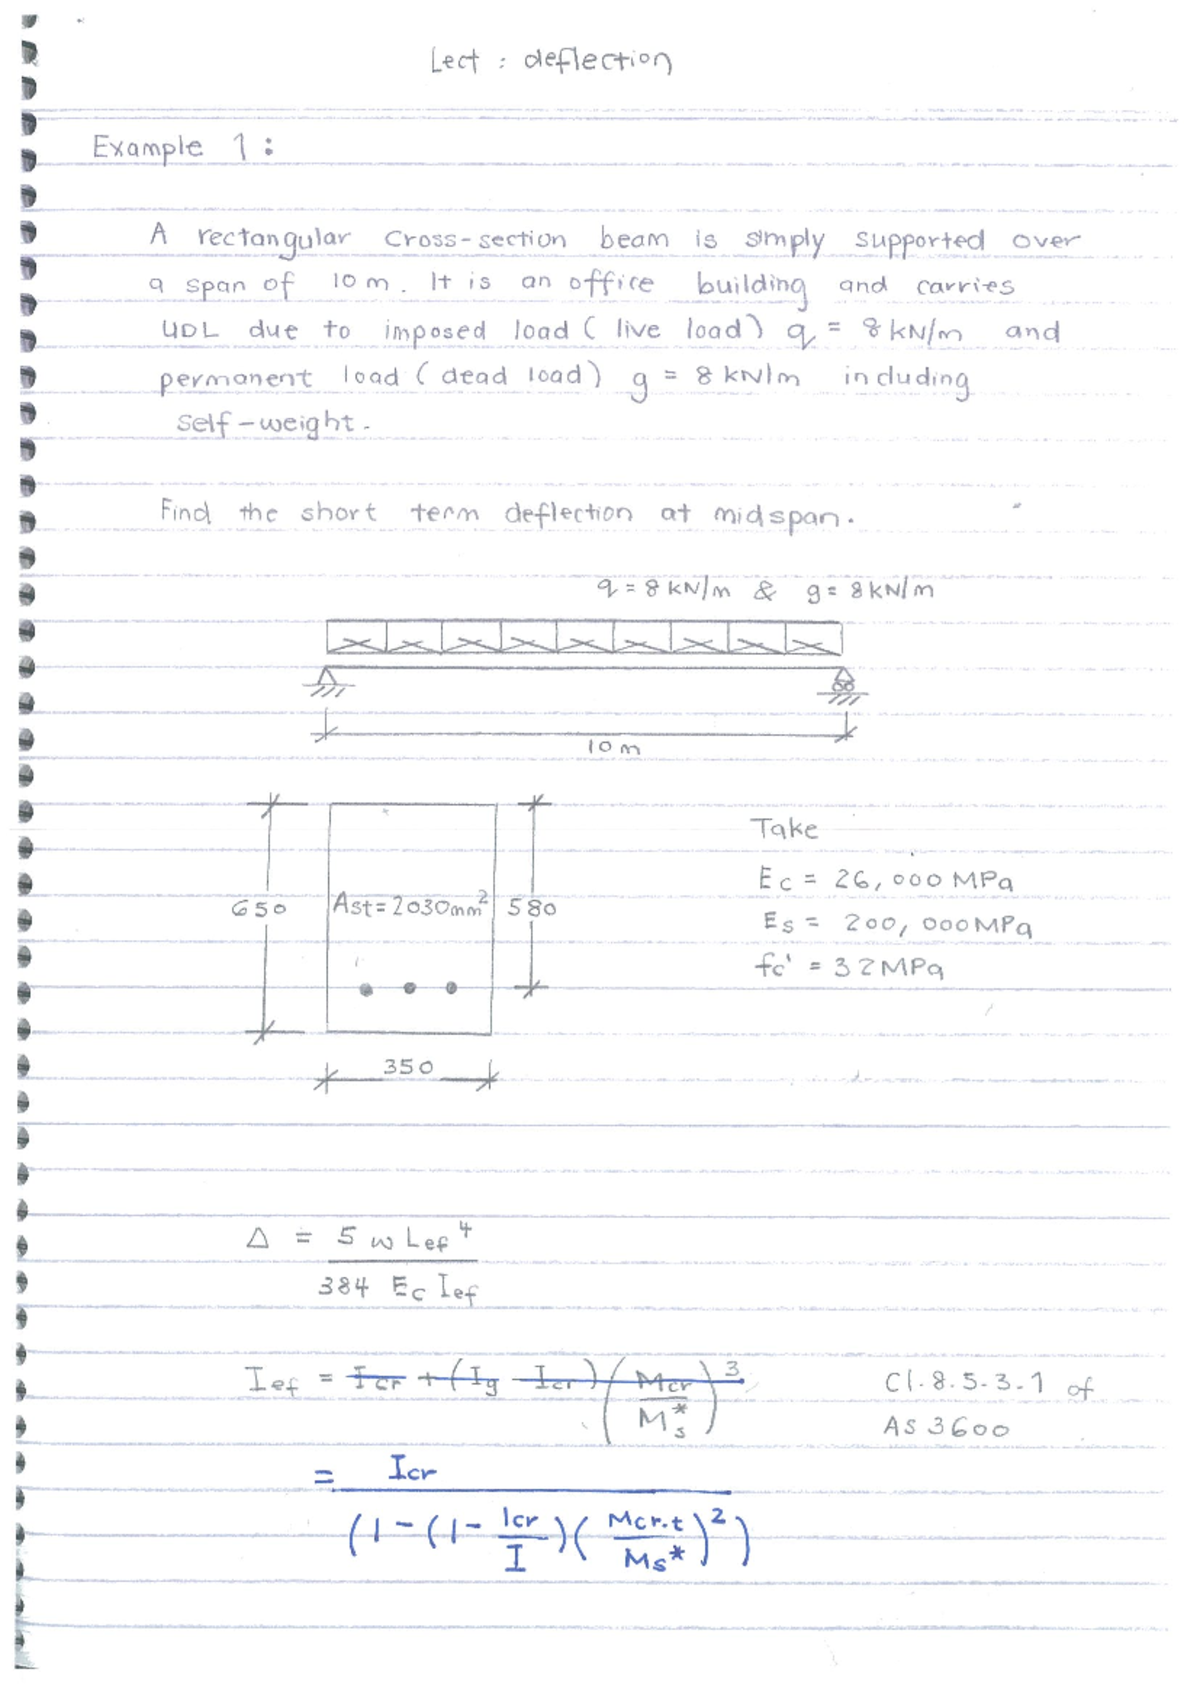 Lect : deflection
Example 1 :
A rectangular cross-section beam is simply supported over
a span of 10 m. It is an office building and carries
UDL due to imposed load ( live load ) q = 8 kN/m and
permanent load ( dead load ) g = 8 kN/m including
self-weight.
Find the short term deflection at midspan.
q = 8 kN/m & g = 8 kN/m
10 m
Take
Ec = 26,000 MPa
650 Ast = 2030mm² 580
Es = 200,000 MPa
fc' = 32 MPa
350
Δ = 5 w Lef⁴
384 Ec Ief
Ief = Icr + (Ig - Icr) (Mcr / Ms*)³ Cl. 8.5.3.1 of
AS 3600
= Icr
(1 - (1 - Icr / I) (Mcr.t / Ms*)²)